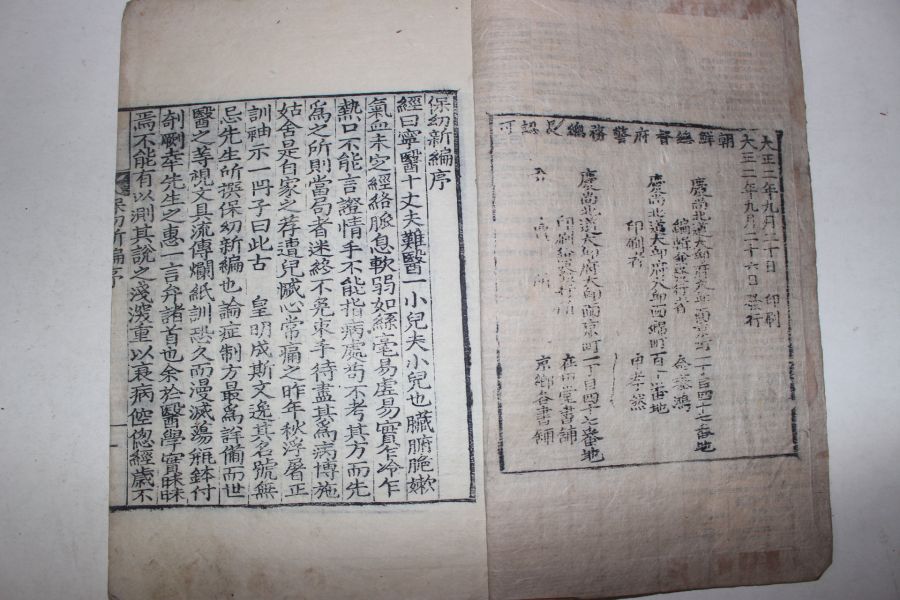 朝鮮總督府警務總長認可
大正二年九月二十日 印刷
大正二年九月二十六日 發行
慶尚北道大邱府大邱面京町二丁目四十七番地
編輯兼發行者
慶尚北道大邱府大邱面
印刷者
慶尚北道大邱府大邱面京町一丁目四十七番地
印刷兼發行所 在田堂書鋪
京鄉各書鋪
保幼新編序
經曰寧醫十丈夫難醫一小兒夫小兒也臟腑脆嫰
氣血未定經絡脈息軟弱如絲毫易虛易實乍冷乍
熱口不能言證情手不能指病處苟不考其方而先
爲之所則當局者迷終不免束手待盡其爲病博施
姑舍是白家之荐遭兒慽心常痛之昨年秋浮屠正
訓袖示一冊子曰此古 皇明成斯文逸其名號無
忌先生所撰保幼新編也論症制方最爲詳備而世
醫之等視文具流傳爛紙訓恐久而漫滅蕩瓶鉢付
剞劂幸先生之惠一言弁諸首也余於醫學實昧昧
焉不能有以測其說之淺深重以衰病倥傯經歲不
保幼新編序
一